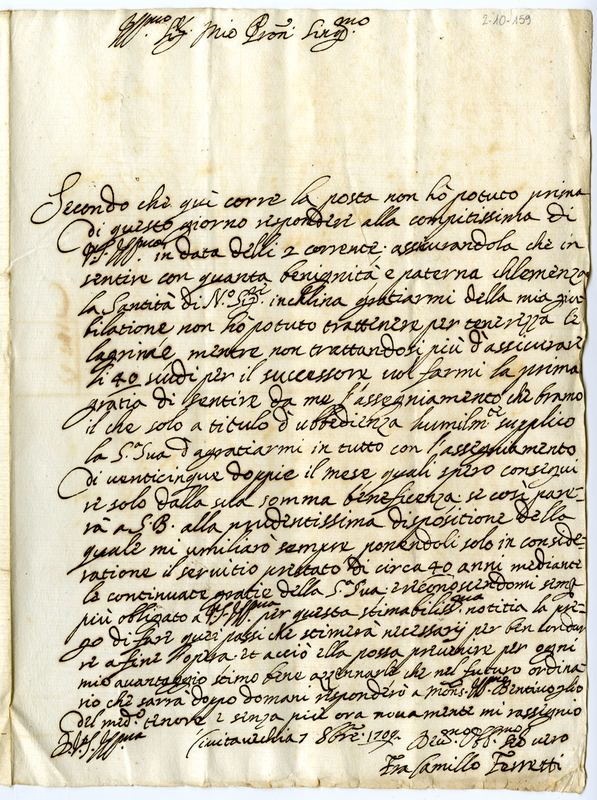 2-10-159
Ill.mo Sig. Mio Pron. Sing.mo
Secondo che quì corre la posta non hò potuto prima
di questo giorno rispondere alla compitissima di
V.S. Ill.ma in data delli 2 corrente. assicurandola che in
sentire con quanta benignità e paterna chlemenza
la Santità di N.ro Sig.re inchlina gratiarmi della mia giu-
bilatione non hò potuto trattenere per tenerezza le
lagrime mentre non trattandosi più d'assicurare
li 40 scudi per il successore vol farmi la prima
gratia di sentire da me l'assegniamento che bramo
il che solo a titulo d'ubbedienza humilm.te supplico
la S.tà Sua d'agratiarmi in tutto con l'assegniamento
di venticinque doppie il mese quali spero consegui
re solo dalla sua somma beneficenza se così pare-
rà a S.B. alla prudentissima dispositione della
quale mi umiliarò sempre ponendoli solo in conside-
ratione il servitio prestato di circa 40 anni mediante
le continuate gratie della S.tà Sua. e riconoscendomi semp.
più obligato a V.S. Ill.ma per questa stimabiliss.ma notitia la pre-
go di fare quei passi che stimerà necessarij per ben condur
re a fine l'opera. et acciò ella possa prevenire per ogni
mio avantaggio stimo bene accennarle che nel futuro ordina
rio che sarrà dopo domani risponderò a Mons. Ill.mo Bentivoglio
del med.o tenore e senza più ora novamente mi rassegnio
D. V.S. Ill.ma Civitavechia 7 8bre 1709. Dev.mo Obb.mo Ser vero
Fra Camillo Ferretti